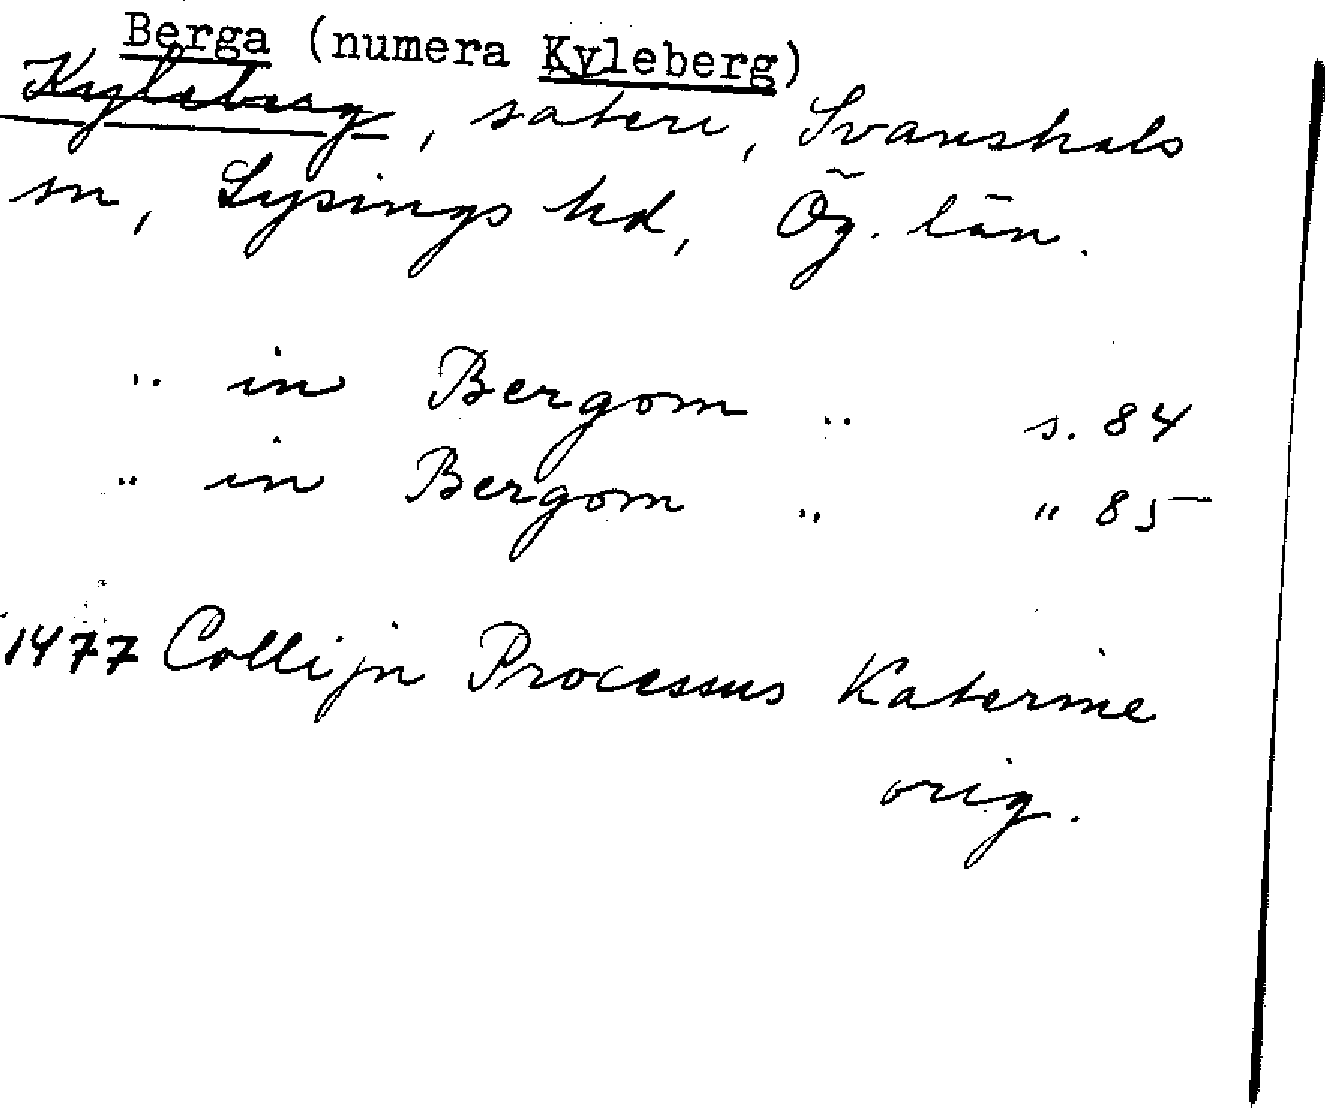 Berga (numera Kyleberg)
Kyleberg, säteri, Svanshals
sn, Lysings hd, Ög. län.
" in Bergom " s. 84
" in Bergom " " 85
1477 Collijn Processus Katerine
orig.